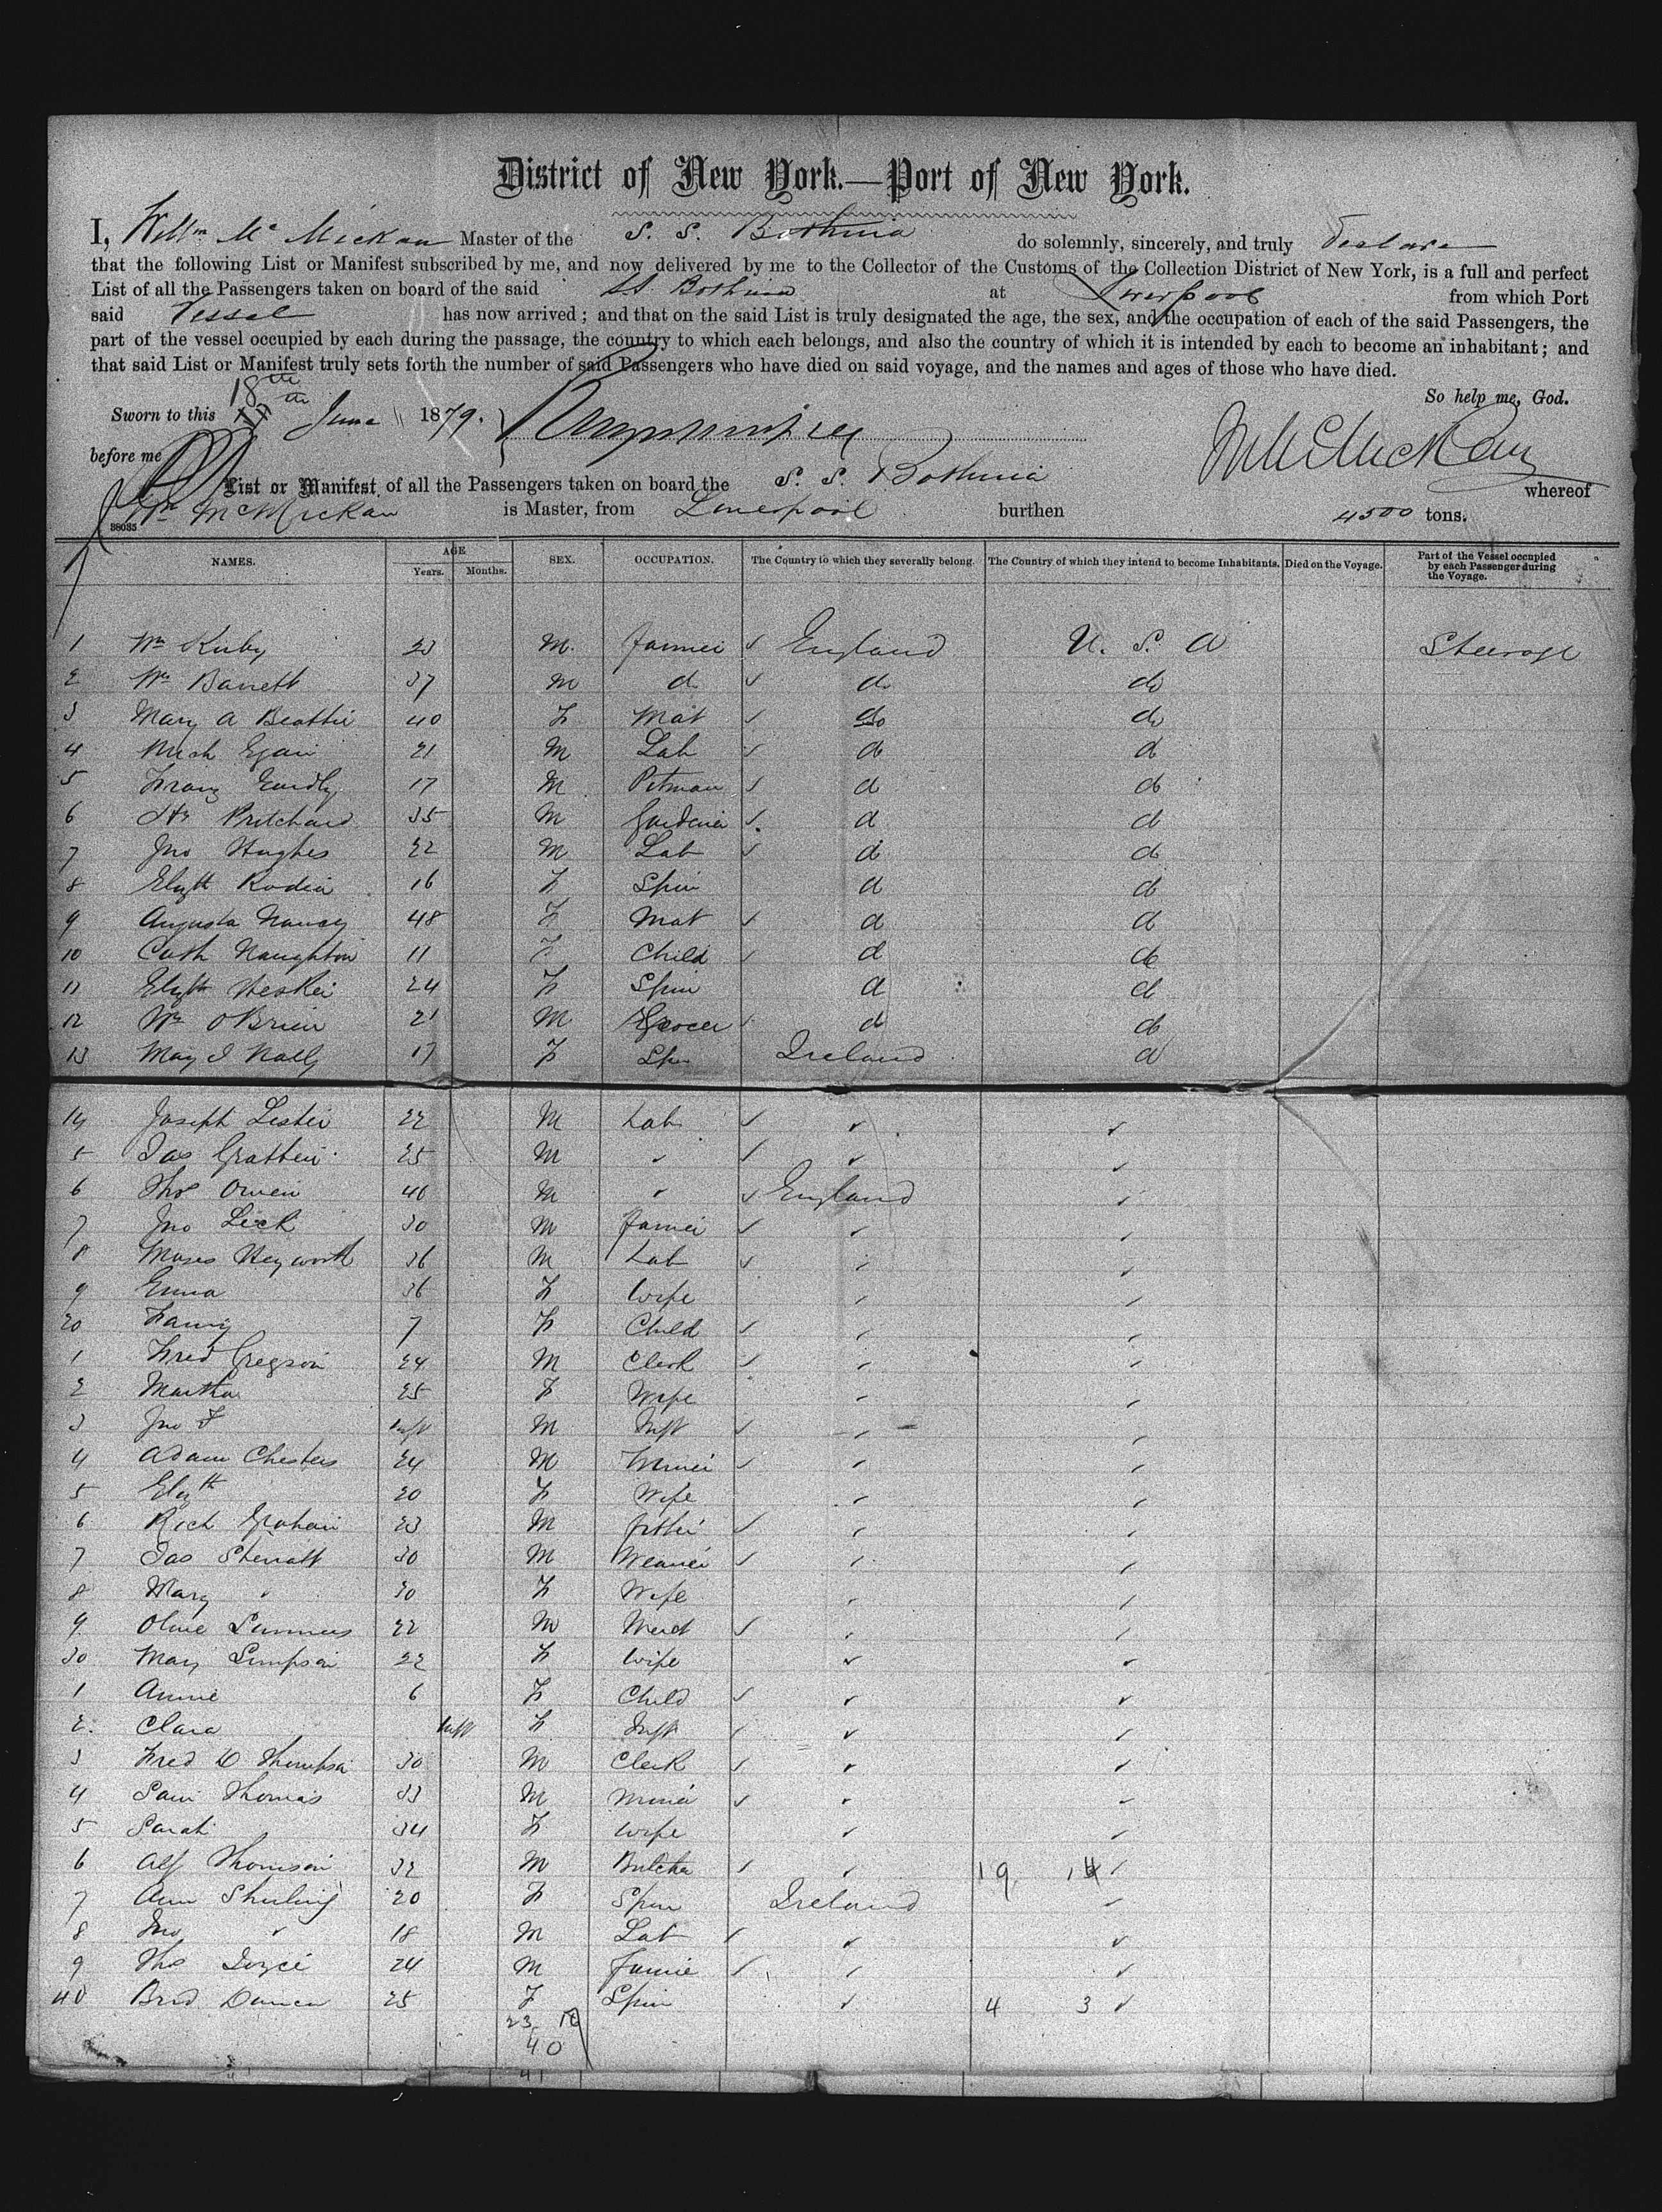 District of New York.—Port of New York.
I, Willm Mc Mickan Master of the S. S. Bothnia do solemnly, sincerely, and truly declare
that the following List or Manifest subscribed by me, and now delivered by me to the Collector of the Customs of the Collection District of New York, is a full and perfect
List of all the Passengers taken on board of the said SS Bothnia at Liverpool from which Port
said Vessel has now arrived; and that on the said List is truly designated the age, the sex, and the occupation of each of the said Passengers, the
part of the vessel occupied by each during the passage, the country to which each belongs, and also the country of which it is intended by each to become an inhabitant; and
that said List or Manifest truly sets forth the number of said Passengers who have died on said voyage, and the names and ages of those who have died.
So help me, God.
Sworn to this 18th June 1879.
before me
W McMickan
List or Manifest of all the Passengers taken on board the S. S. Bothnia whereof
Wm McMickan is Master, from Liverpool burthen 4500 tons.
38035
NAMES. AGE Years. Months. SEX. OCCUPATION. The Country to which they severally belong. The Country of which they intend to become Inhabitants. Died on the Voyage. Part of the Vessel occupied by each Passenger during the Voyage.
1 Wm Kirby 23 M. Farmer England U. S. A Steerage
2 Wm Barrett 37 M d do do
3 Mary A Beattie 40 F Mat do do
4 Mich Egan 21 M Lab do d
5 Franz 17 M Pitman d do
6 Hy Pritchard 35 M Gardener d d
7 Jno Hughes 22 M Lab d d
8 Elizth 16 F Spin d d
9 Augusta Nancy 48 F Mat d d
10 Cath Naughton 11 F Child d do
11 Elizth Hesker 24 F Spin d d
12 Wm OBrien 21 M Grocer d do
13 Mary J Nally 17 F Spin Ireland d
14 Joseph Lester 22 M Lab
5 Jas Gratten 25 M
6 Thos Owen 40 M England
7 Jno Leck 30 M Farmer
8 Moses Heyworth 36 M Lab
9 Emma 36 F Wife
20 Fanny 7 F Child
1 Fred Gregson 24 M Clerk
2 Martha 25 F Wife
3 Jno F Inft M Inft
4 Adam Chesters 24 M
5 Elizth 20 F Wife
6 Rich Graham 23 M
7 Jas Sherratt 30 M Weaver
8 Mary " 30 F Wife
9 22 M Mercht
30 Mary Simpson 22 F Wife
1 Annie 6 F Child
2. Clara Inft F Inft
3 Fred W Thompson 30 M Clerk
4 Sam Thomas 33 M Miner
5 Sarah 34 F Wife
6 Alf Thomson 32 M Butcher 19 14
7 Ann 20 F Spin Ireland
8 Jno " 18 M Lab
9 Thos Joyce 24 M Farmer
40 Brid 25 F Spin 4 3
23
40
41